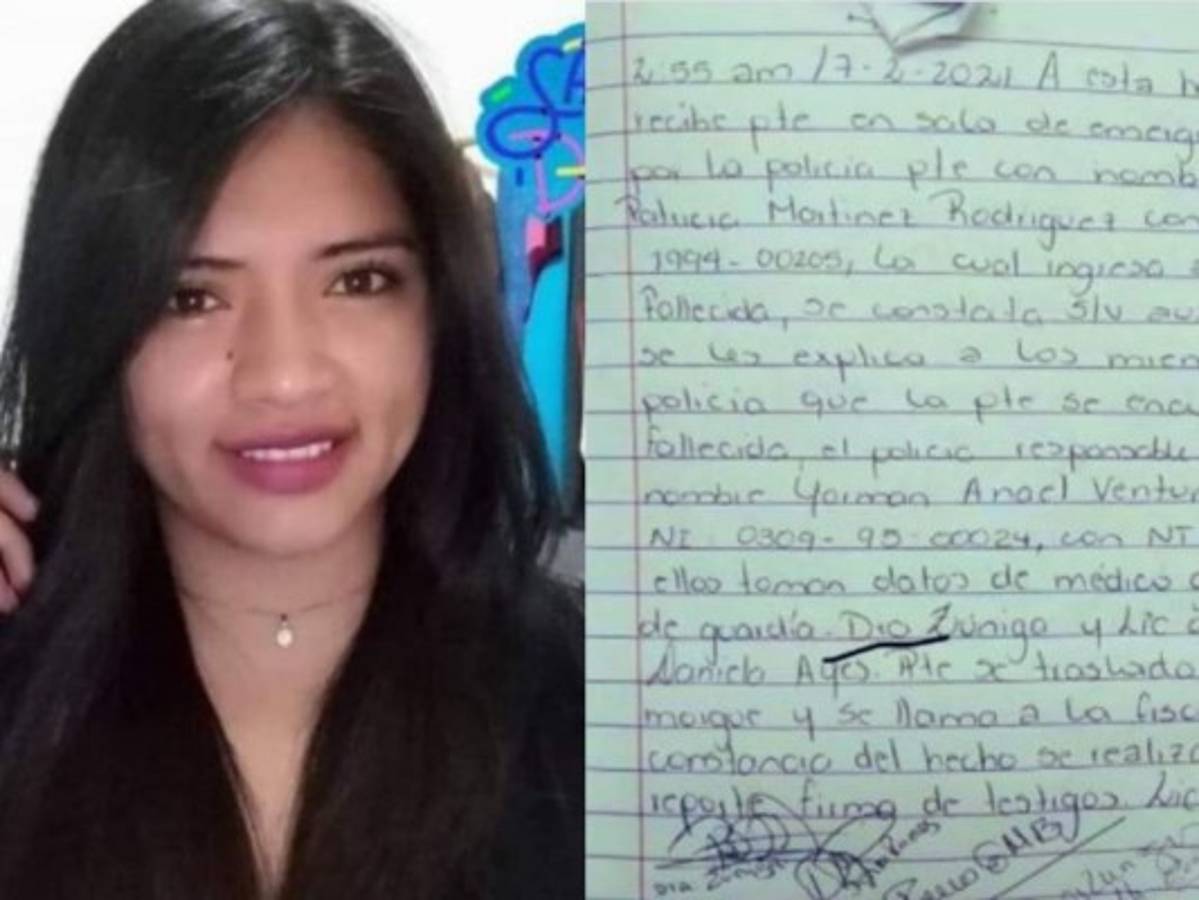 2:55 am 17-2-2021 A esta h
recibe pte en sala de emerg
por la policia pte con nomb
Patricia Martinez Rodriguez con
1994-00205, la cual ingresa
fallecida, se constata S/V
se les explica a los miem
policia que la pte se encu
fallecida, el policia responsable
nombre Yarman Anael Ventu
NI 0309-95-00024, con NI
ellos toman datos de médico
de guardia. Dra Zuniga y Lic
Daniela Pte se traslada
morgue y se llama a la fisc
constancia del hecho se realiza
reporte firma de testigos. Lic